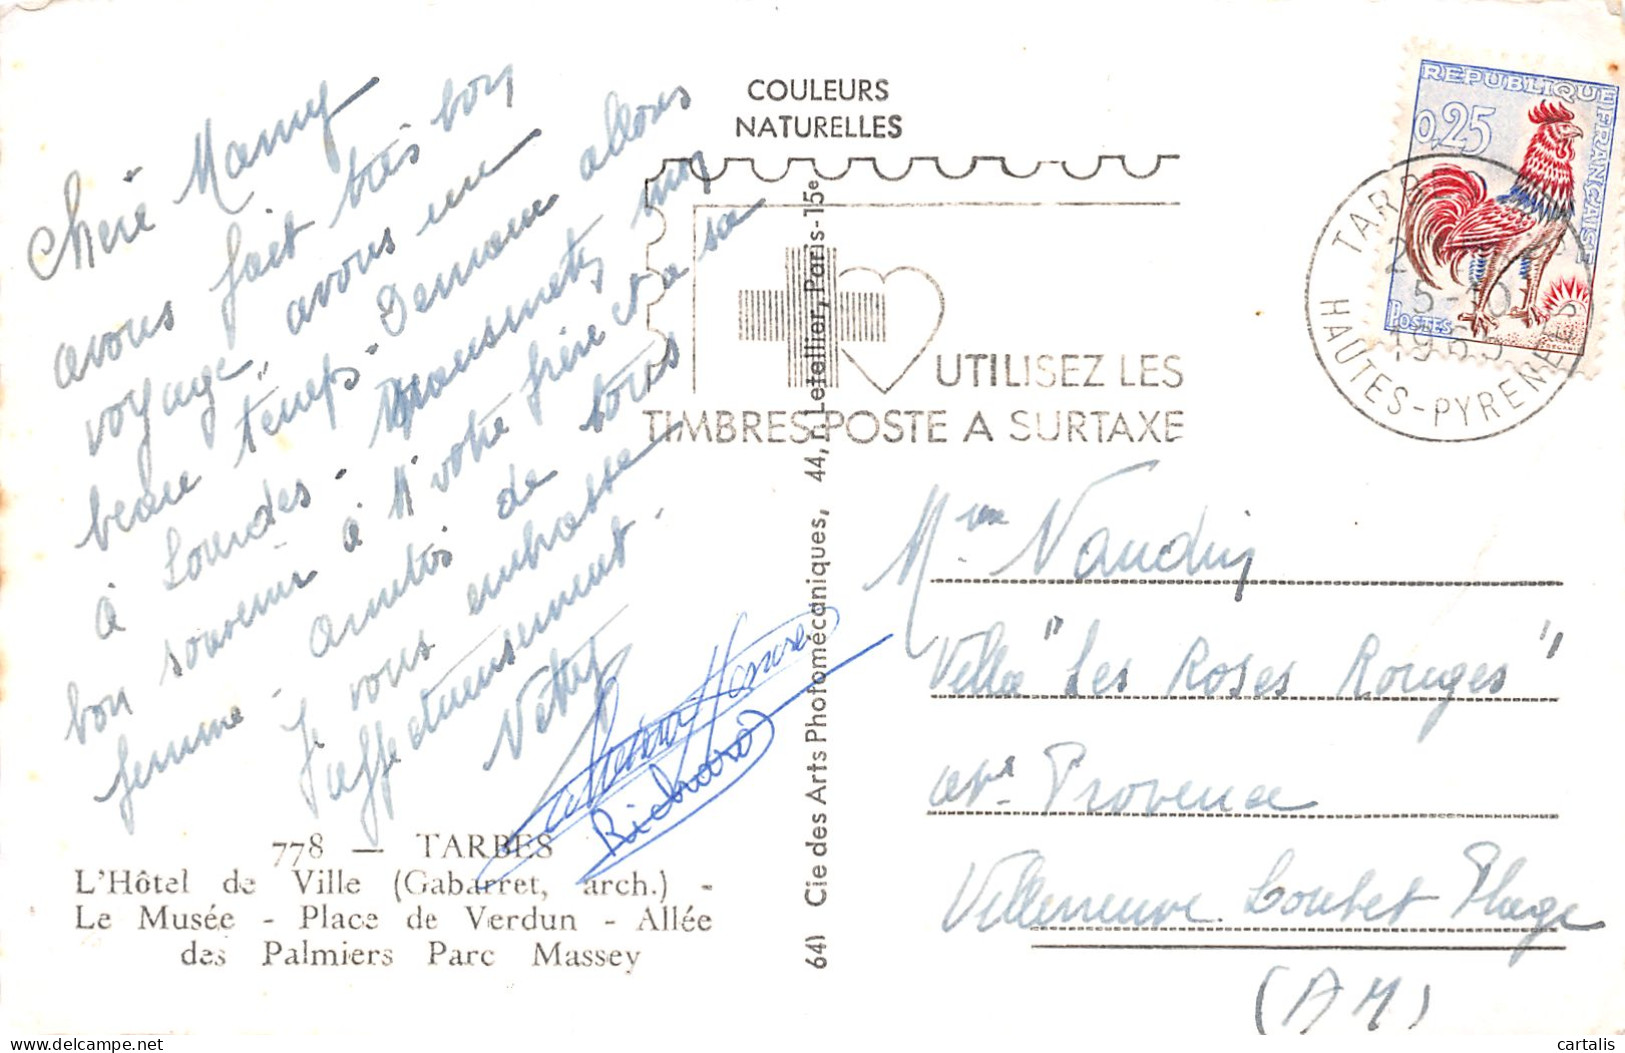 Chère Mamy
avons fait très bon
voyage, avons un
beau temps. Demain allons
à Lourdes. Transmets mon
bon souvenir à M votre frère et a sa
femme. amitiés de tous
Je vous embrasse
affectueusement.
Netty
Richard
778 — TARBES
L'Hôtel de Ville (Gabarret, arch.) -
Le Musée - Place de Verdun - Allée
des Palmiers Parc Massey
COULEURS
NATURELLES
641 Cie des Arts Photomécaniques, 44, r. Letellier, Paris-15e
UTILISEZ LES
TIMBRES-POSTE A SURTAXE
REPUBLIQUE FRANÇAISE
0,25
POSTES
TARBES
5-10
1965
HAUTES-PYRENEES
Mme Naudin
Villa "Les Roses Rouges"
av. Provence
Villeneuve Loubet Plage
(AM)
cartalis